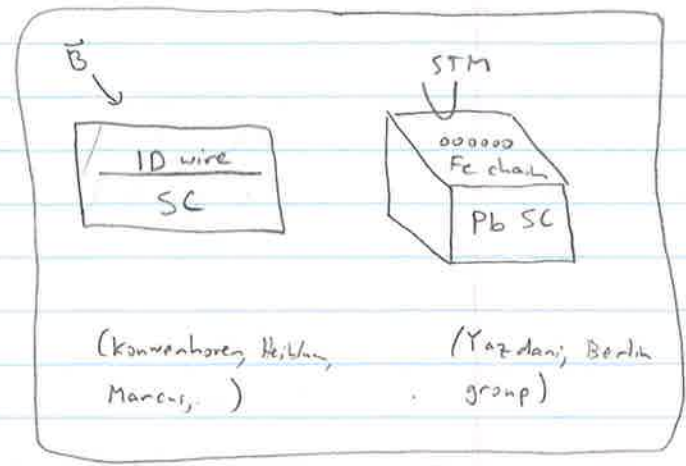 B⃗
STM
1D wire
SC
oooooo
Fe chain
Pb SC
(Kouwenhoven, Heiblum,
Marcus, )
(Yazdani, Berlin
group)